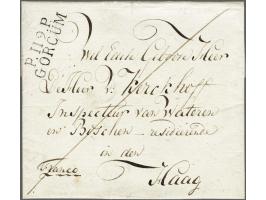 P.119.P.
GORCUM
Wel Edele Gebore Heer
De Heer v. Kerckhoff
Inspecteur van Wateren
en Bosschen - resideerende
in den
Haag
franco